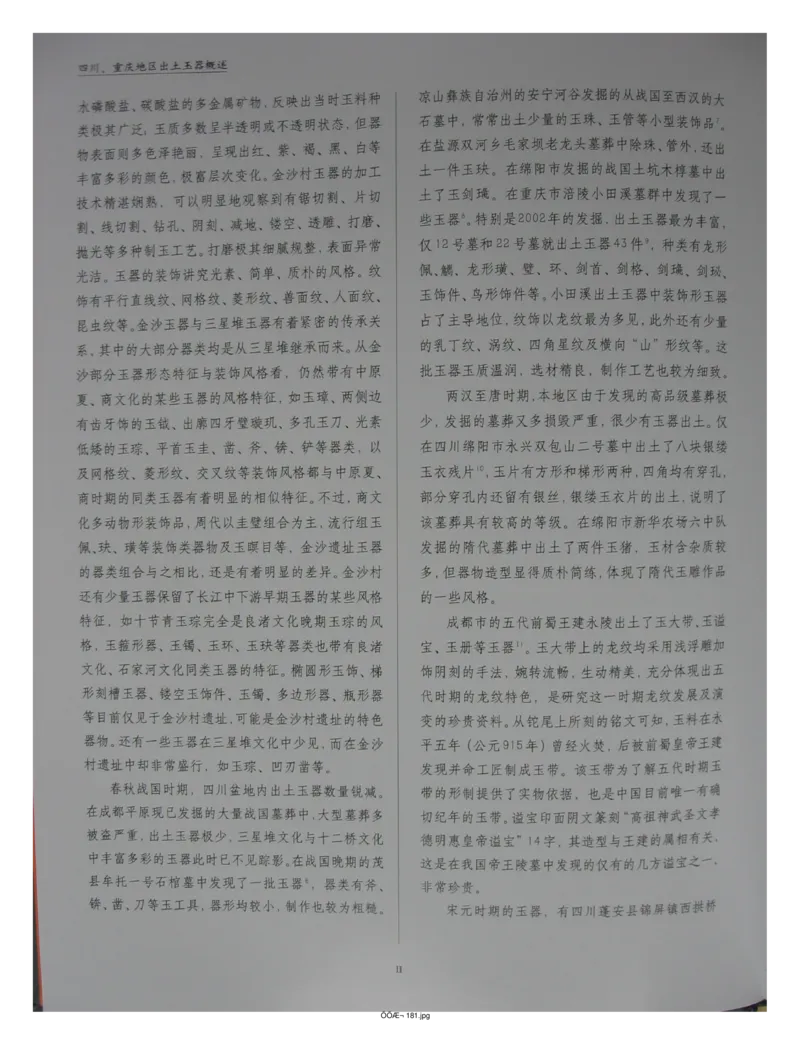 四川、重庆地区出土玉器概述
水磷酸盐、碳酸盐的多金属矿物，反映出当时玉料种
类极其广泛；玉质多数呈半透明或不透明状态，但器
物表面则多色泽艳丽，呈现出红、紫、褐、黑、白等
丰富多彩的颜色，极富层次变化。金沙村玉器的加工
技术精湛娴熟，可以明显地观察到有锯切割、片切
割、线切割、钻孔、阴刻、减地、镂空、透雕、打磨、
抛光等多种制玉工艺。打磨极其细腻规整，表面异常
光洁。玉器的装饰讲究光素、简单、质朴的风格。纹
饰有平行直线纹、网格纹、菱形纹、兽面纹、人面纹、
昆虫纹等。金沙玉器与三星堆玉器有着紧密的传承关
系，其中的大部分器类均是从三星堆继承而来。从金
沙部分玉器形态特征与装饰风格看，仍然带有中原
夏、商文化的某些玉器的风格特征，如玉璋、两侧边
有齿牙饰的玉钺、出廓四牙璧璇玑、多孔玉刀、光素
低矮的玉琮、平首玉圭、凿、斧、锛、铲等器类，以
及网格纹、菱形纹、交叉纹等装饰风格都与中原夏、
商时期的同类玉器有着明显的相似特征。不过，商文
化多动物形装饰品，周代以圭璧组合为主，流行组玉
佩、玦、璜等装饰类器物及玉瞑目等，金沙遗址玉器
的器类组合与之相比，还是有着明显的差异。金沙村
还有少量玉器保留了长江中下游早期玉器的某些风格
特征，如十节青玉琮完全是良渚文化晚期玉琮的风
格，玉箍形器、玉镯、玉环、玉玦等器类也带有良渚
文化、石家河文化同类玉器的特征。椭圆形玉饰、梯
形刻槽玉器、镂空玉饰件、玉镯、多边形器、瓶形器
等目前仅见于金沙村遗址，可能是金沙村遗址的特色
器物。还有一些玉器在三星堆文化中少见，而在金沙
村遗址中却非常盛行，如玉琮、凹刃凿等。
春秋战国时期，四川盆地内出土玉器数量锐减。
在成都平原现已发掘的大量战国墓葬中，大型墓葬多
被盗严重，出土玉器极少，三星堆文化与十二桥文化
中丰富多彩的玉器此时已不见踪影。在战国晚期的茂
县牟托一号石棺墓中发现了一批玉器⁶，器类有斧、
锛、凿、刀等玉工具，器形均较小，制作也较为粗糙。
凉山彝族自治州的安宁河谷发掘的从战国至西汉的大
石墓中，常常出土少量的玉珠、玉管等小型装饰品⁷。
在盐源双河乡毛家坝老龙头墓葬中除珠、管外，还出
土一件玉玦。在绵阳市发掘的战国土坑木椁墓中出
土了玉剑璏。在重庆市涪陵小田溪墓群中发现了一
些玉器⁸。特别是2002年的发掘，出土玉器最为丰富，
仅12号墓和22号墓就出土玉器43件⁹，种类有龙形
佩、觿、龙形璜、璧、环、剑首、剑格、剑璏、剑珌、
玉饰件、鸟形饰件等。小田溪出土玉器中装饰形玉器
占了主导地位，纹饰以龙纹最为多见，此外还有少量
的乳丁纹、涡纹、四角星纹及横向“山”形纹等。这
批玉器玉质温润，选材精良，制作工艺也较为细致。
两汉至唐时期，本地区由于发现的高品级墓葬极
少，发掘的墓葬又多损毁严重，很少有玉器出土。仅
在四川绵阳市永兴双包山二号墓中出土了八块银缕
玉衣残片¹⁰，玉片有方形和梯形两种，四角均有穿孔，
部分穿孔内还留有银丝，银缕玉衣片的出土，说明了
该墓葬具有较高的等级。在绵阳市新华农场六中队
发掘的隋代墓葬中出土了两件玉猪，玉材含杂质较
多，但器物造型显得质朴简练，体现了隋代玉雕作品
的一些风格。
成都市的五代前蜀王建永陵出土了玉大带、玉谥
宝、玉册等玉器¹¹。玉大带上的龙纹均采用浅浮雕加
饰阴刻的手法，婉转流畅，生动精美，充分体现出五
代时期的龙纹特色，是研究这一时期龙纹发展及演
变的珍贵资料。从铊尾上所刻的铭文可知，玉料在永
平五年（公元915年）曾经火焚，后被前蜀皇帝王建
发现并命工匠制成玉带。该玉带为了解五代时期玉
带的形制提供了实物依据，也是中国目前唯一有确
切纪年的玉带。谥宝印面阴文篆刻“高祖神武圣文孝
德明惠皇帝谥宝”14字，其造型与王建的属相有关，
这是在我国帝王陵墓中发现的仅有的几方谥宝之一，
非常珍贵。
宋元时期的玉器，有四川蓬安县锦屏镇西拱桥
II
ÖÖÆ¬ 181.jpg